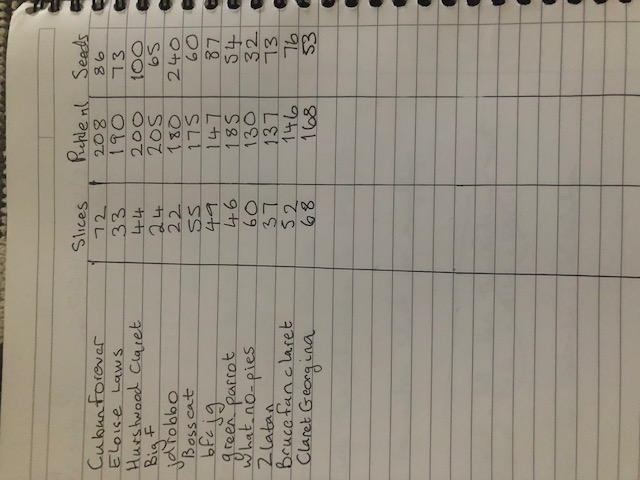 Slices Pickle ml Seeds
Cubanforever 72 208 86
Eloise Laws 33 190 73
Hurstwood Claret 44 200 100
Big F 24 205 65
jdrobbo 22 180 240
Bosscat 55 175 60
bfcjg 49 147 87
green_parrot 46 185 54
what_no_pies 60 130 32
Zlatan 37 137 73
Brucefanclaret 52 146 76
Claret Georgina 68 168 53